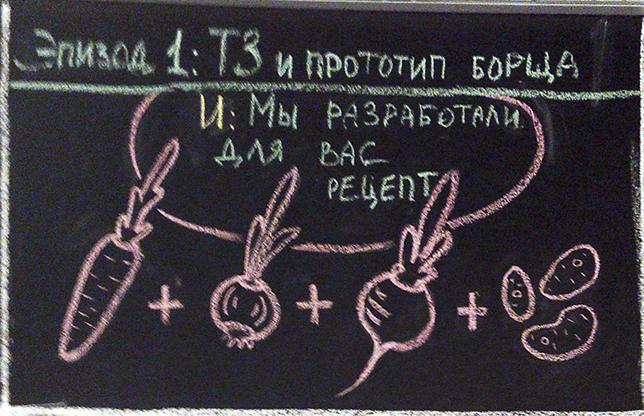 Эпизод 1: ТЗ и прототип борща
И: Мы разработали
для вас
рецепт
+ + +